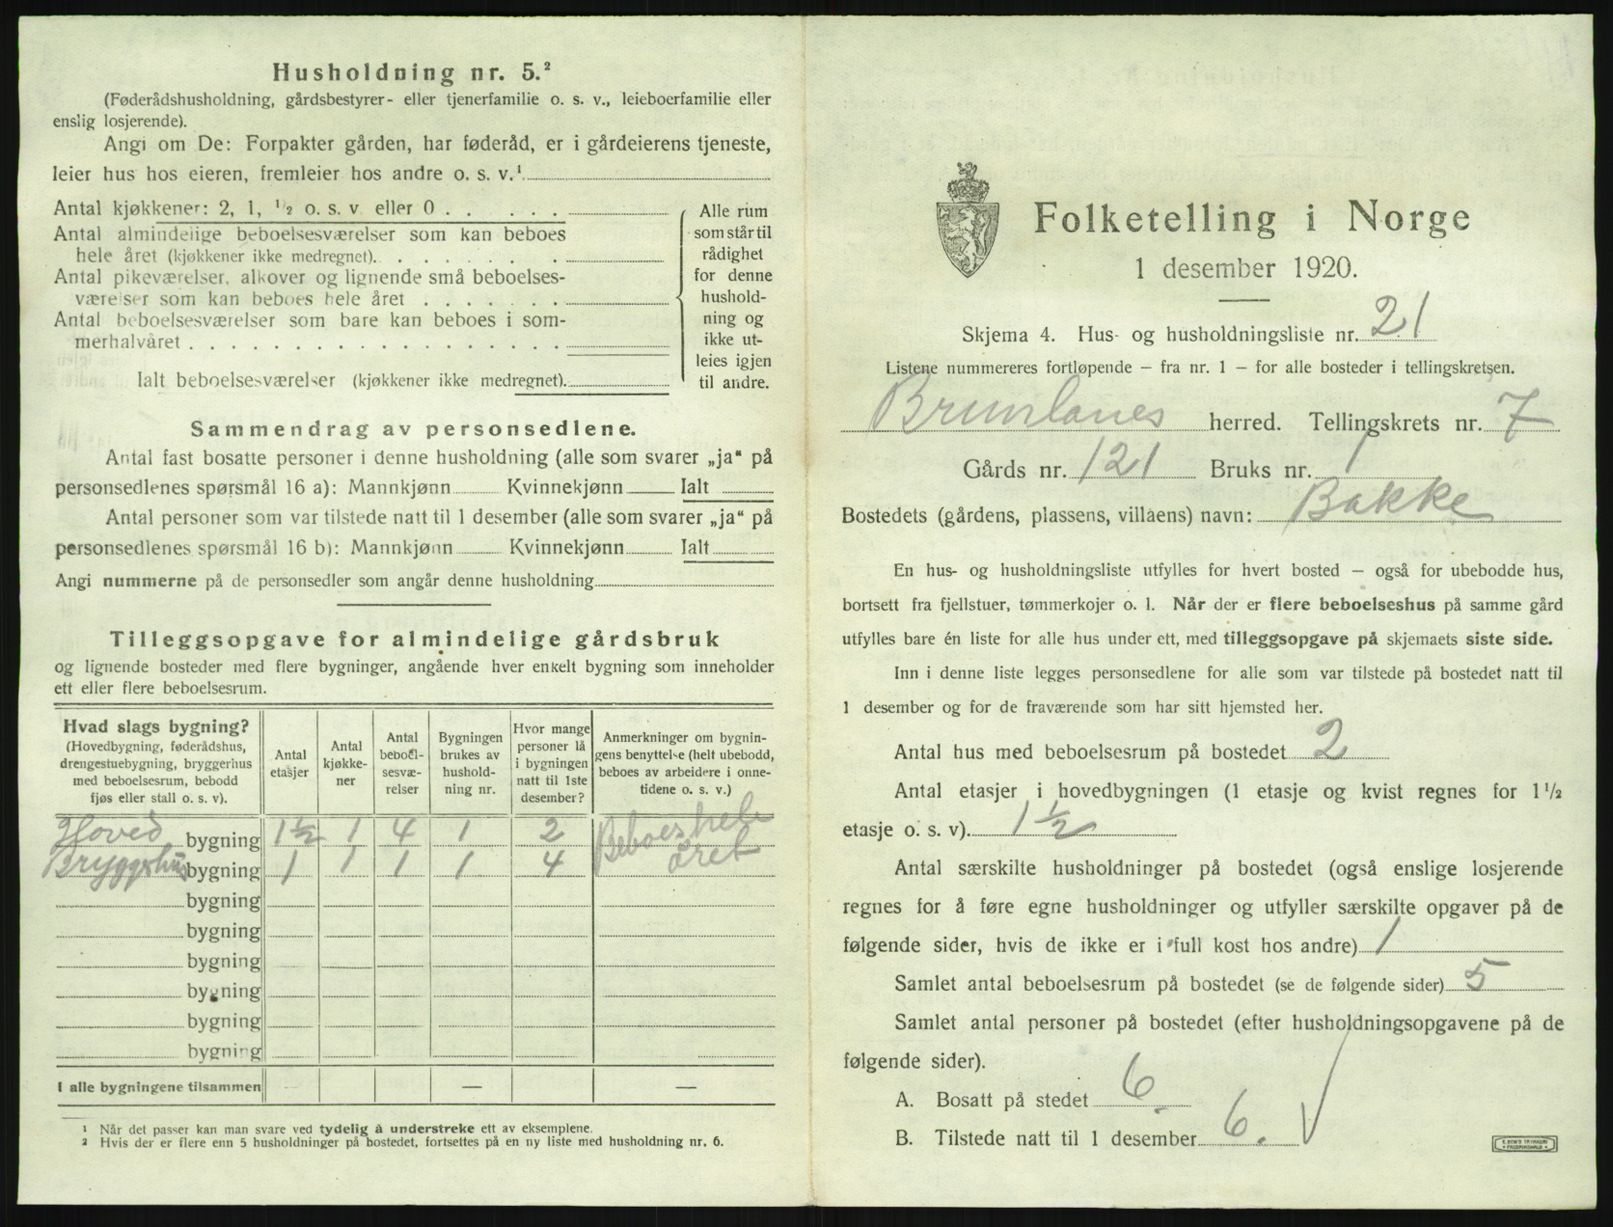 Husholdning nr. 5.²
(Føderådshusholdning, gårdsbestyrer- eller tjenerfamilie o. s. v., leieboerfamilie eller
enslig losjerende).
Angi om De: Forpakter gården, har føderåd, er i gårdeierens tjeneste,
leier hus hos eieren, fremleier hos andre o. s. v.¹
Antal kjøkkener: 2, 1, ½ o. s. v. eller 0
Antal almindelige beboelsesværelser som kan beboes
hele året (kjøkkener ikke medregnet).
Antal pikeværelser, alkover og lignende små beboelses-
værelser som kan beboes hele året
Antal beboelsesværelser som bare kan beboes i som-
merhalvåret
Ialt beboelsesværelser (kjøkkener ikke medregnet).
Alle rum
som står til
rådighet
for denne
hushold-
ning og
ikke ut-
leies igjen
til andre.
Sammendrag av personsedlene.
Antal fast bosatte personer i denne husholdning (alle som svarer „ja“ på
personsedlenes spørsmål 16 a): Mannkjønn Kvinnekjønn Ialt
Antal personer som var tilstede natt til 1 desember (alle som svarer „ja“ på
personsedlenes spørsmål 16 b): Mannkjønn Kvinnekjønn Ialt
Angi nummerne på de personsedler som angår denne husholdning
Tilleggsopgave for almindelige gårdsbruk
og lignende bosteder med flere bygninger, angående hver enkelt bygning som inneholder
ett eller flere beboelsesrum.
Hvad slags bygning?
(Hovedbygning, føderådshus,
drengestuebygning, bryggerhus
med beboelsesrum, bebodd
fjøs eller stall o. s. v).
Antal
etasjer
Antal
kjøkke-
ner
Antal
beboel-
sesvæ-
relser
Bygningen
brukes av
hushold-
ning nr.
Hvor mange
personer lå
i bygningen
natt til 1ste
desember?
Anmerkninger om bygnin-
gens benyttelse (helt ubebodd,
beboes av arbeidere i onne-
tidene o. s. v.)
Hoved bygning 1½ 1 4 1 2 Beboes hele
Bryggehus bygning 1 1 1 1 4 året
bygning
bygning
bygning
bygning
bygning
bygning
I alle bygningene tilsammen — —
¹ Når det passer kan man svare ved tydelig å understreke ett av eksemplene.
² Hvis der er flere enn 5 husholdninger på bostedet, fortsettes på en ny liste med husholdning nr. 6.
Folketelling i Norge
1 desember 1920.
Skjema 4. Hus- og husholdningsliste nr. 21
Listene nummereres fortløpende – fra nr. 1 – for alle bosteder i tellingskretsen.
Brunlanes herred. Tellingskrets nr. 7
Gårds nr. 121 Bruks nr. 1
Bostedets (gårdens, plassens, villaens) navn: Bakke
En hus- og husholdningsliste utfylles for hvert bosted – også for ubebodde hus,
bortsett fra fjellstuer, tømmerkojer o. l. Når der er flere beboelseshus på samme gård
utfylles bare én liste for alle hus under ett, med tilleggsopgave på skjemaets siste side.
Inn i denne liste legges personsedlene for alle som var tilstede på bostedet natt til
1 desember og for de fraværende som har sitt hjemsted her.
Antal hus med beboelsesrum på bostedet 2
Antal etasjer i hovedbygningen (1 etasje og kvist regnes for 1½
etasje o. s. v). 1½
Antal særskilte husholdninger på bostedet (også enslige losjerende
regnes for å føre egne husholdninger og utfyller særskilte opgaver på de
følgende sider, hvis de ikke er i full kost hos andre) 1
Samlet antal beboelsesrum på bostedet (se de følgende sider) 5
Samlet antal personer på bostedet (efter husholdningsopgavene på de
følgende sider).
A. Bosatt på stedet 6.
B. Tilstede natt til 1 desember 6. V